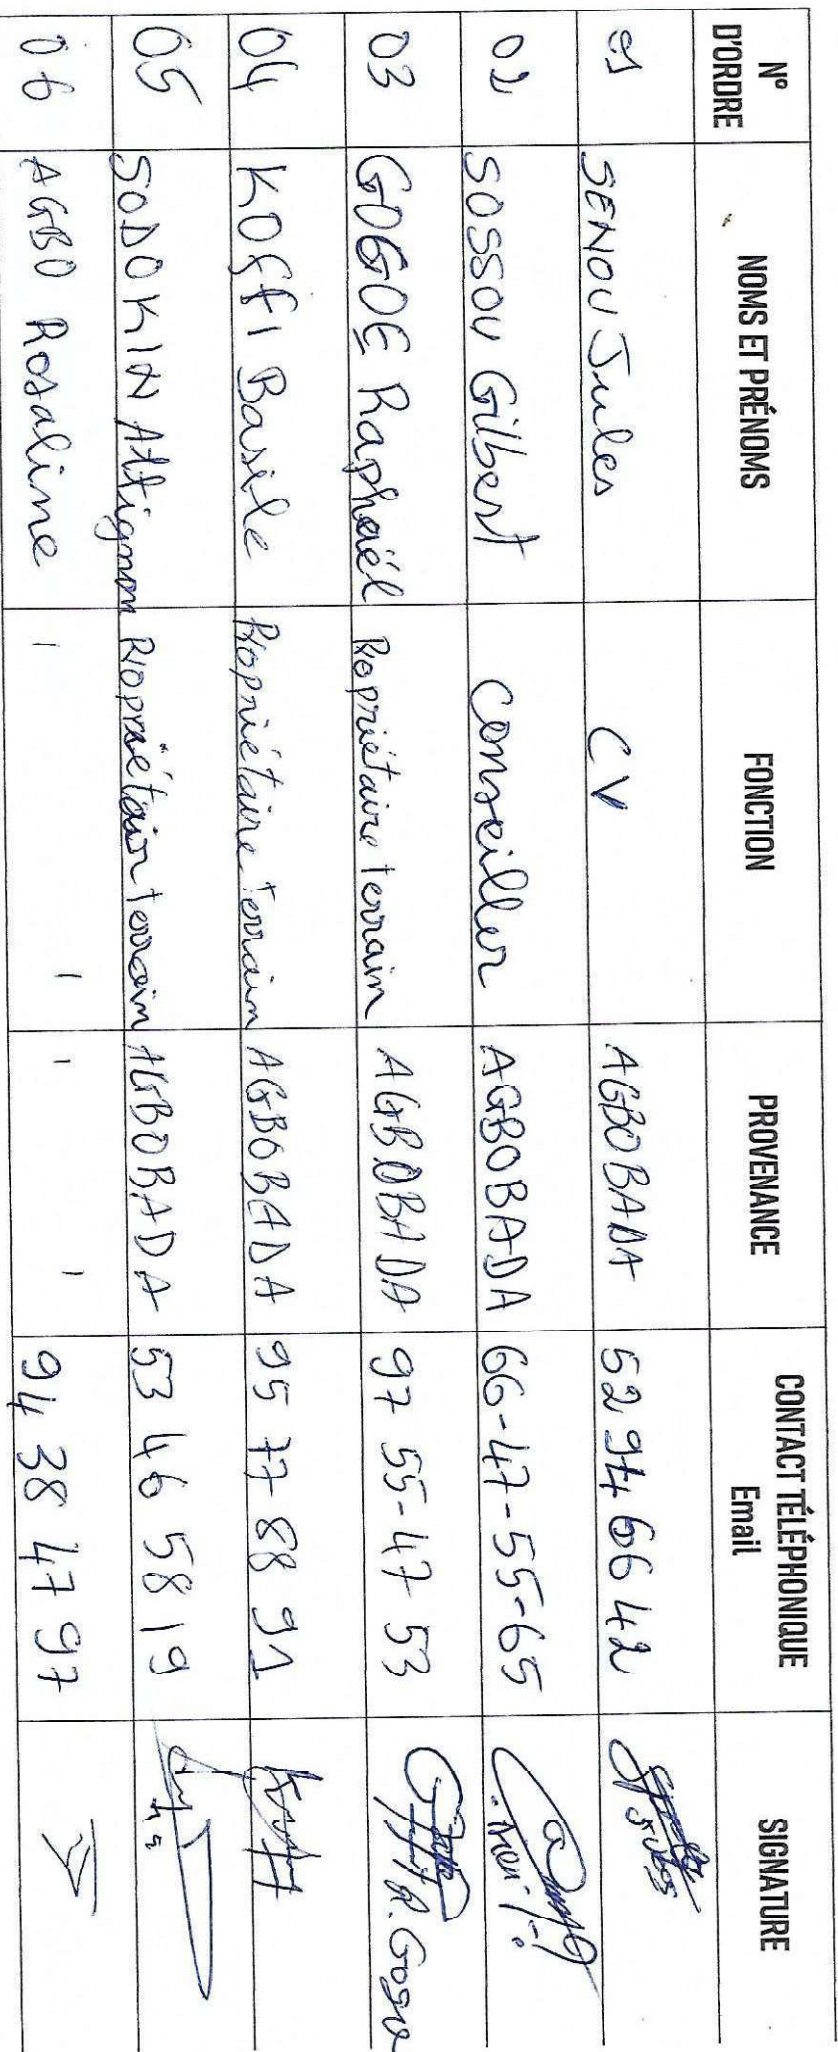 N° D'ORDRE NOMS ET PRÉNOMS FONCTION PROVENANCE CONTACT TÉLÉPHONIQUE Email SIGNATURE
01 SENOU Jules CV AGBOBADA 52 94 66 42
02 SOSSOU Gilbert Conseiller AGBOBADA 66-47-55-65
03 GOGOE Raphaël Propriétaire terrain AGBOBADA 97 55-47 53 R. Gogo
04 KOffi Basile Propriétaire terrain AGBOBADA 95 77 88 91
05 SODOKIN Attignon Propriétair terrain AGBOBADA 53 46 58 19
06 AGBO Rosaline 94 38 47 97